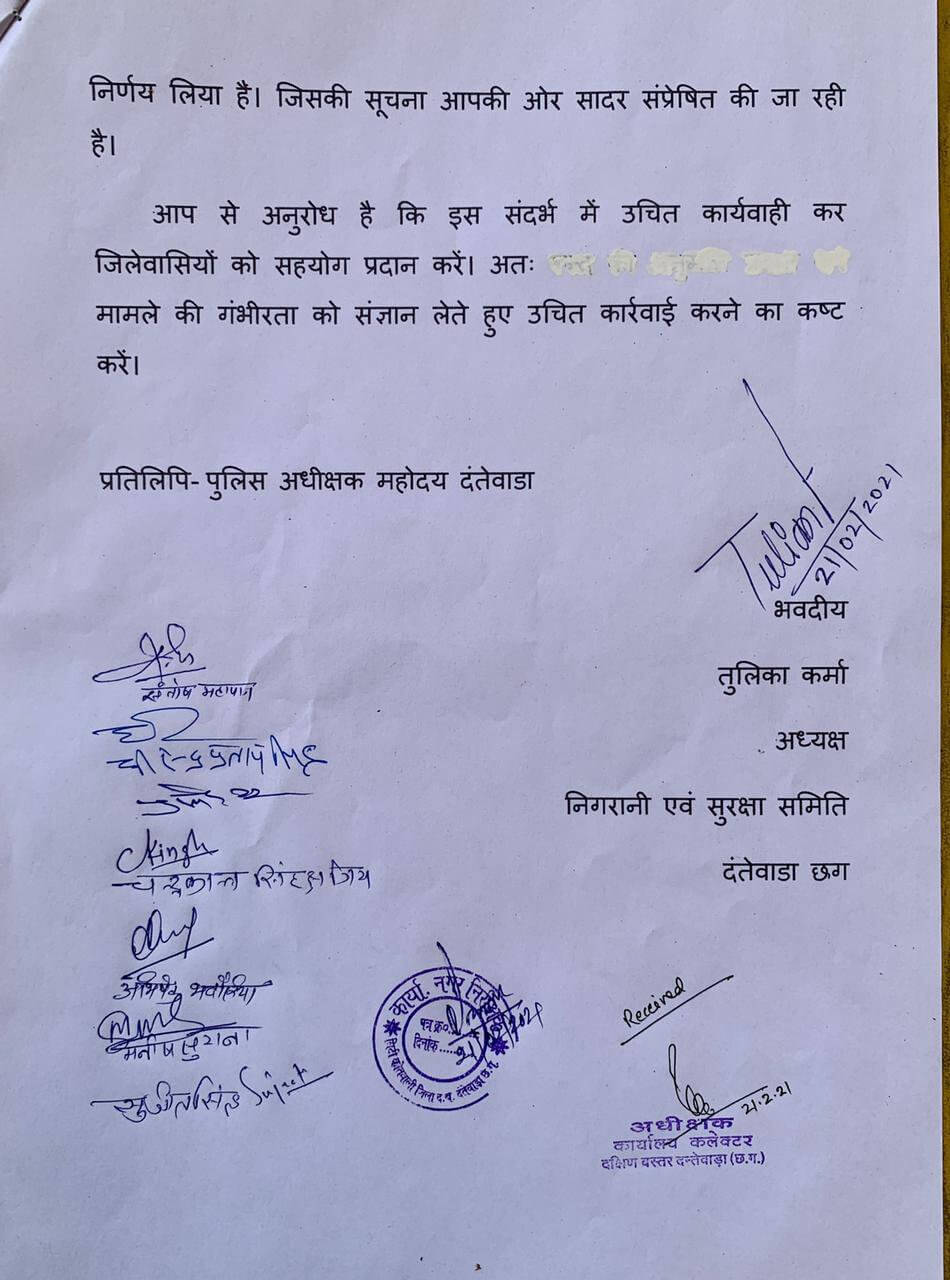 निर्णय लिया है। जिसकी सूचना आपकी ओर सादर संप्रेषित की जा रही
है।
आप से अनुरोध है कि इस संदर्भ में उचित कार्यवाही कर
जिलेवासियों को सहयोग प्रदान करें। अतः
मामले की गंभीरता को संज्ञान लेते हुए उचित कार्रवाई करने का कष्ट
करें।
प्रतिलिपि- पुलिस अधीक्षक महोदय दंतेवाडा
21/02/2021
भवदीय
तुलिका कर्मा
अध्यक्ष
निगरानी एवं सुरक्षा समिति
दंतेवाडा छग
संतोष महापात्र
Singh
मनीष सुराना
सुजीत सिंह Sujeet
कार्या. नगर
पत्र क्र०
दिनांक
सिटी कोतवाली जिला द.ब. दंतेवाड़ा छ.ग.
Received
21.2.21
अधीक्षक
कार्यालय कलेक्टर
दक्षिण बस्तर दन्तेवाड़ा (छ.ग.)